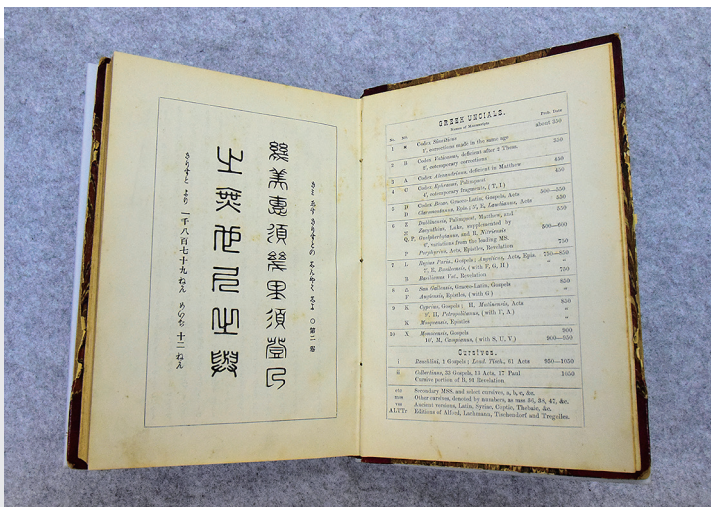 幾美惠須幾里須登乃
之無也久之與
きりすと より 一千八百七十九ねん めいぢ 十二ねん
GREEK UNCIALS.
No. Names of Manuscripts Prob. Date
1 א Codex Sinaiticus about 350
corrections made in the same age
2 B Codex Vaticanus, deficient after 2 Thess. 350
cotemporary corrections
3 A Codex Alexandrinus, deficient in Matthew 450
4 C Codex Ephraemi, Palimpsest 450
cotemporary fragments, (T, I)
5 D Codex Bezae, Graeco-Latin, Gospels, Acts 500—550
D Claromontanus, Epis.; E, Laudianus, Acts 550
6 Z Dublinensis, Palimpsest, Matthew, and 550
Ξ Zacynthius, Luke, supplemented by
Q, P, Guelpherbytanus, and R, Nitriensis 500—600
variations from the leading MS.
P Porphyrius, Acts, Epistles, Revelation 750
7 L Regius Paris, Gospels; Angelicus, Acts, Epis. 750—850
E, Basileensis, (with F, G, H) "
B Basilianus Vat., Revelation 750
8 Δ San Gallensis, Graeco-Latin, Gospels 850
F Augiensis, Epistles, (with G) "
9 K Cyprius, Gospels; H, Mutinensis, Acts 850
Π, Petropolitanus, (with Γ, Λ) "
K Mosquensis, Epistles "
10 X Monacensis, Gospels 900
M, Campianus, (with S, U, V,) 900—950
Cursives.
i Reuchlini, 1 Gospels; Lond. Tisch., 61 Acts 950—1050
ii Colbertinus, 33 Gospels, 13 Acts, 17 Paul 1050
Cursive portion of B, 91 Revelation
etc Secondary MSS. and select cursives, a, b, c, &c.
mss Other cursives, denoted by numbers, as mss 36, 38, 47, &c.
vss Ancient versions, Latin, Syriac, Coptic, Thebaic, &c.
ALTTr Editions of Alford, Lachmann, Tischendorf and Tregelles.